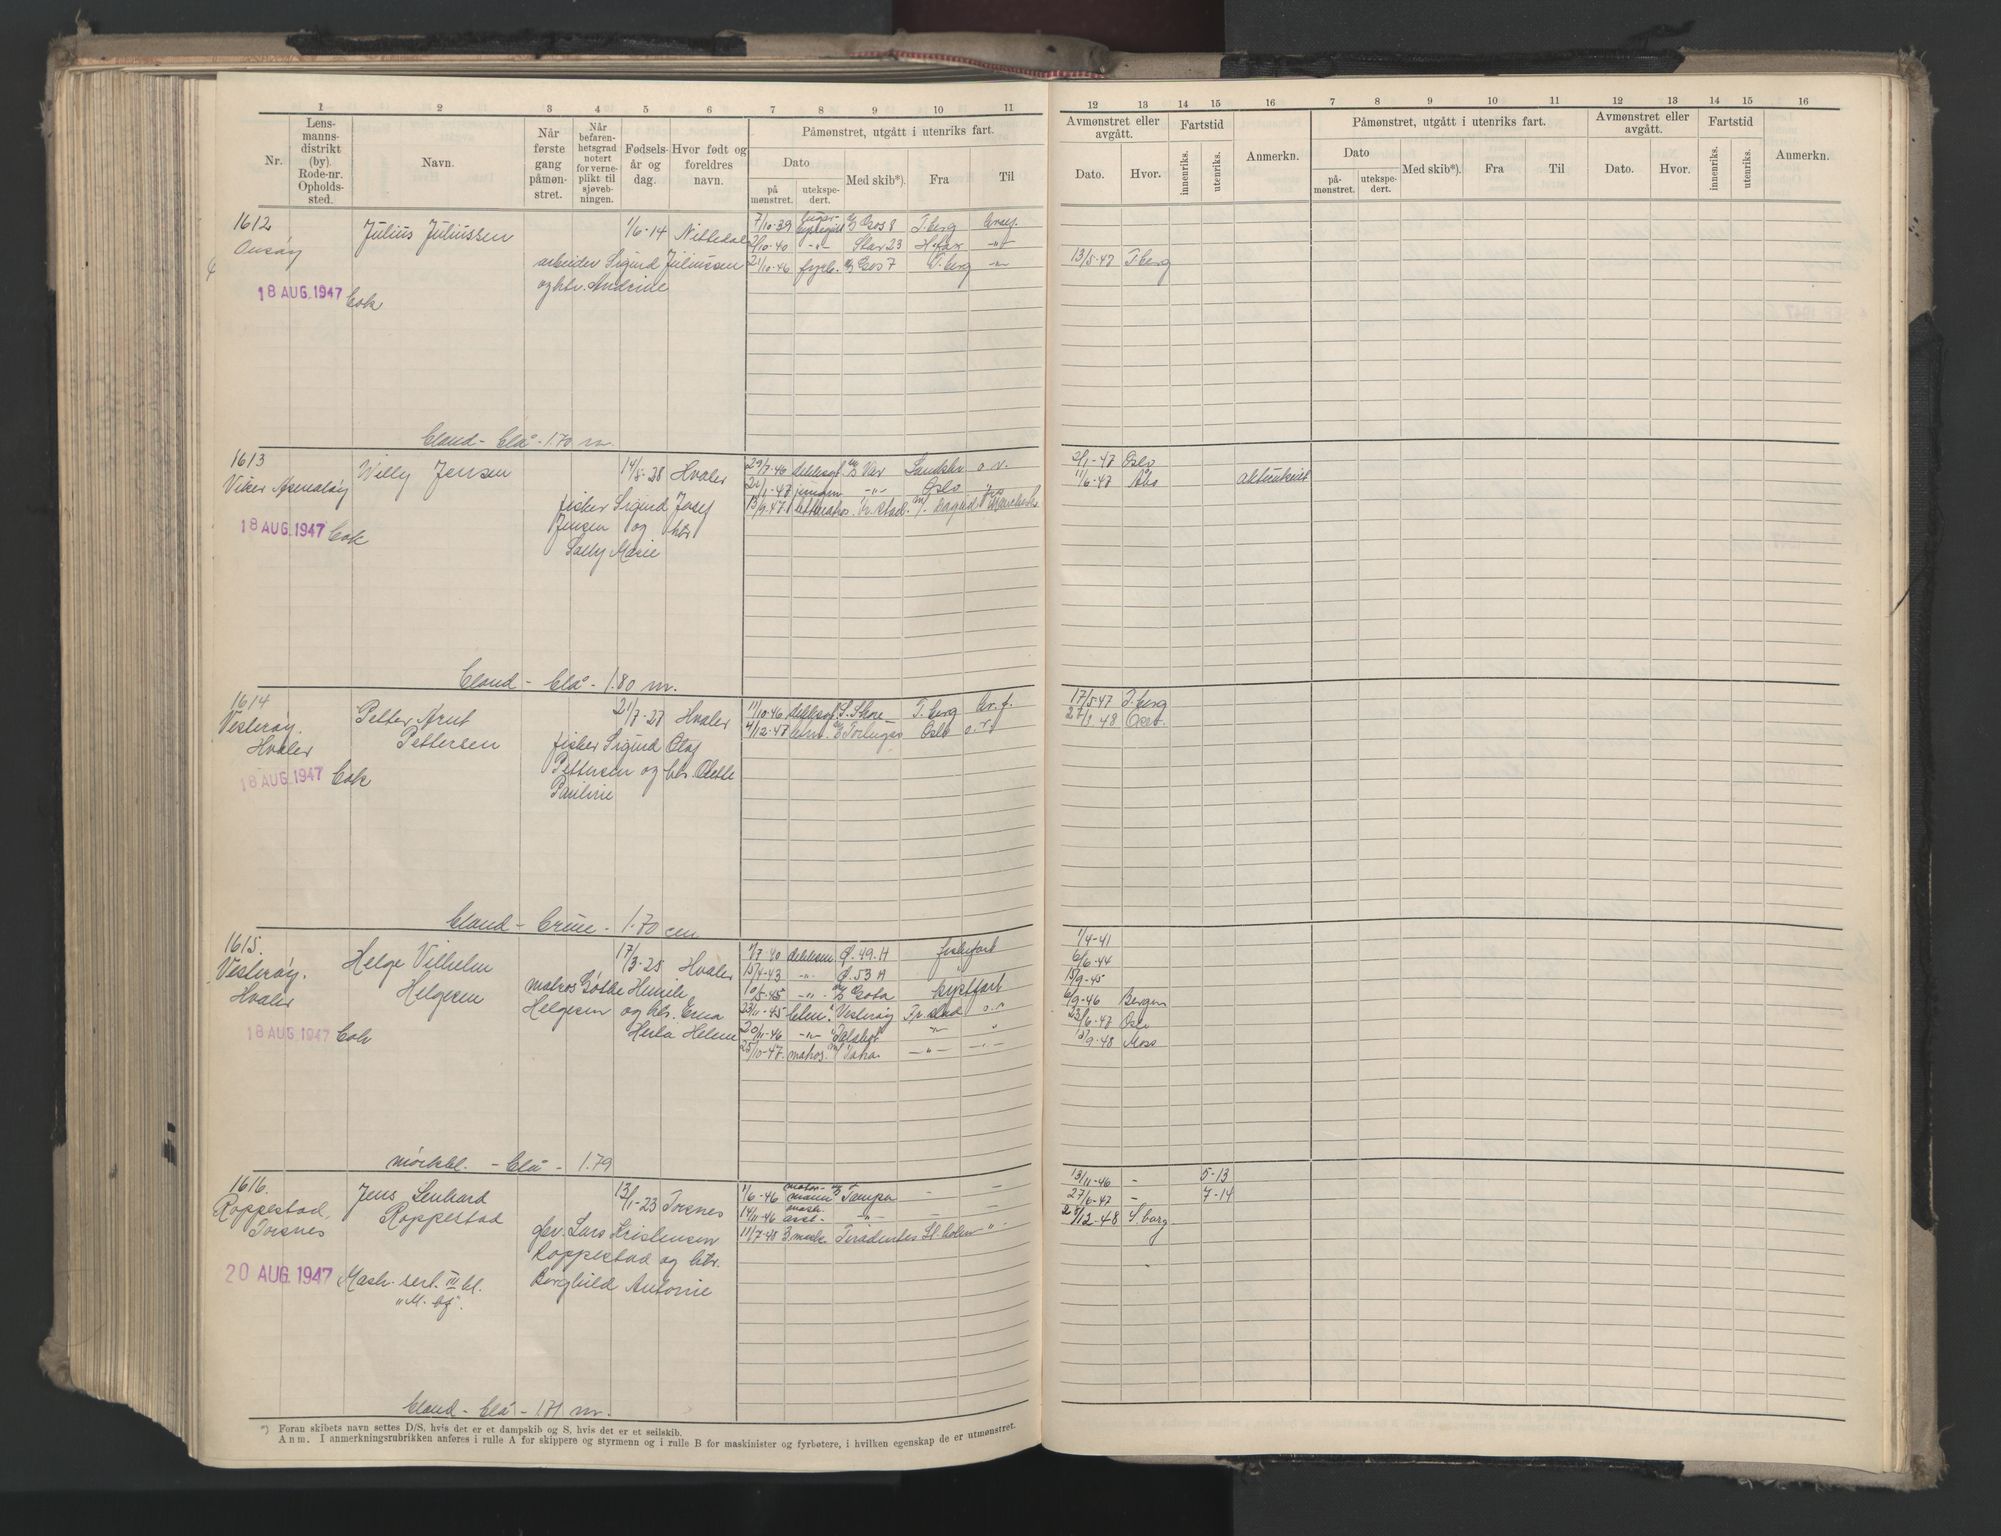 1 2 3 4 5 6 7 8 9 10 11
Nr.
Lensmannsdistrikt (by). Rode-nr. Opholdssted.
Navn.
Når første gang påmønstret.
Når befarenhetsgrad notert for verneplikt til sjøvebningen.
Fødselsår og dag.
Hvor født og foreldres navn.
Påmønstret, utgått i utenriks fart.
Dato
på mønstret.
utekspedert.
Med skib*).
Fra
Til
12 13 14 15 16 7 8 9 10 11 12 13 14 15 16
Avmønstret eller avgått.
Dato.
Hvor.
Fartstid
innenriks.
utenriks.
Anmerkn.
Påmønstret, utgått i utenriks fart.
Dato
påmønstret.
utekspedert.
Med skib*).
Fra
Til
Avmønstret eller avgått.
Dato.
Hvor.
Fartstid
innenriks.
utenriks.
Anmerkn.
1612 Julius Juliussen 1/6-14 Nittedal 7/10-39 Gos 8 T.berg
Onsøy 2/10-40 -"- Star 23 -"-
arbeider Sigurd Juliussen 21/10-46 fyrb. Gos 7 T.berg -"- 13/5-47 T.berg
og htr. Andrine
18 AUG. 1947
bland - blå - 1.70 m.
1613 Willy Jensen 14/5-28 Hvaler 29/7-46 dekksg. Var o.v. 2/1-47 Oslo
Viker Asmaløy 2/1-47 jungm. -"- Oslo 11/6-47 Åbo
fisker Sigurd Josef 13/9-47
18 AUG. 1947 Jensen og htr.
Sally Marie
bland - blå - 1.80 m.
1614 Petter Arut 21/7-27 Hvaler 11/10-46 T.berg 17/5-47 T.berg
Vesterøy. Pettersen 4/12-47 Oslo o.v. 27/1-48
Hvaler fisker Sigurd Olaf
18 AUG. 1947 Pettersen og htr. Odette
Pauline
bland - brune - 1.70 cm
1615. Helge Vilhelm 17/3-25 Hvaler 1/7-40 Ø. 49. H fiskefart 1/4-41
Vesterøy. Helgesen 15/4-43 -"- Ø. 53 A 6/6-44
Hvaler matros Gøthe Henrik 10/5-45 -"- Gota kystfart 15/9-45
Helgesen og htr. Erna 23/11-45 Vesterøy Fr.stad o.v. 6/9-46 Bergen
18 AUG. 1947 Herla Helene 20/11-46 -"- -"- " 23/6-47 Oslo
25/10-47 matros -"- -"- 13/9-48 Moss
mørkbl. - blå - 1.79
1616. Jens Lenhard 13/1-23 Torsnes 1/6-46 motormann Tampa - - 13/11-46 - 5-13
Roppestad, Roppestad 14/11-46 mask. asst. -"- - - 27/6-47 - 7-14
Torsnes Lars Kristensen 11/7-48 3 mask. Tiradentes St.holm -"- 28/12-48 S.borg
Roppestad og htr.
20 AUG. 1947 Mask. sert. III kl. Borghild Antonie
"M. bf".
bland - blå - 1.71 m.
*) Foran skibets navn settes D/S, hvis det er et dampskib og S, hvis det er et seilskib.
Anm. I anmerkningsrubrikken anføres i rulle A for skippere og styrmenn og i rulle B for maskinister og fyrbøtere, i hvilken egenskap de er utmønstret.